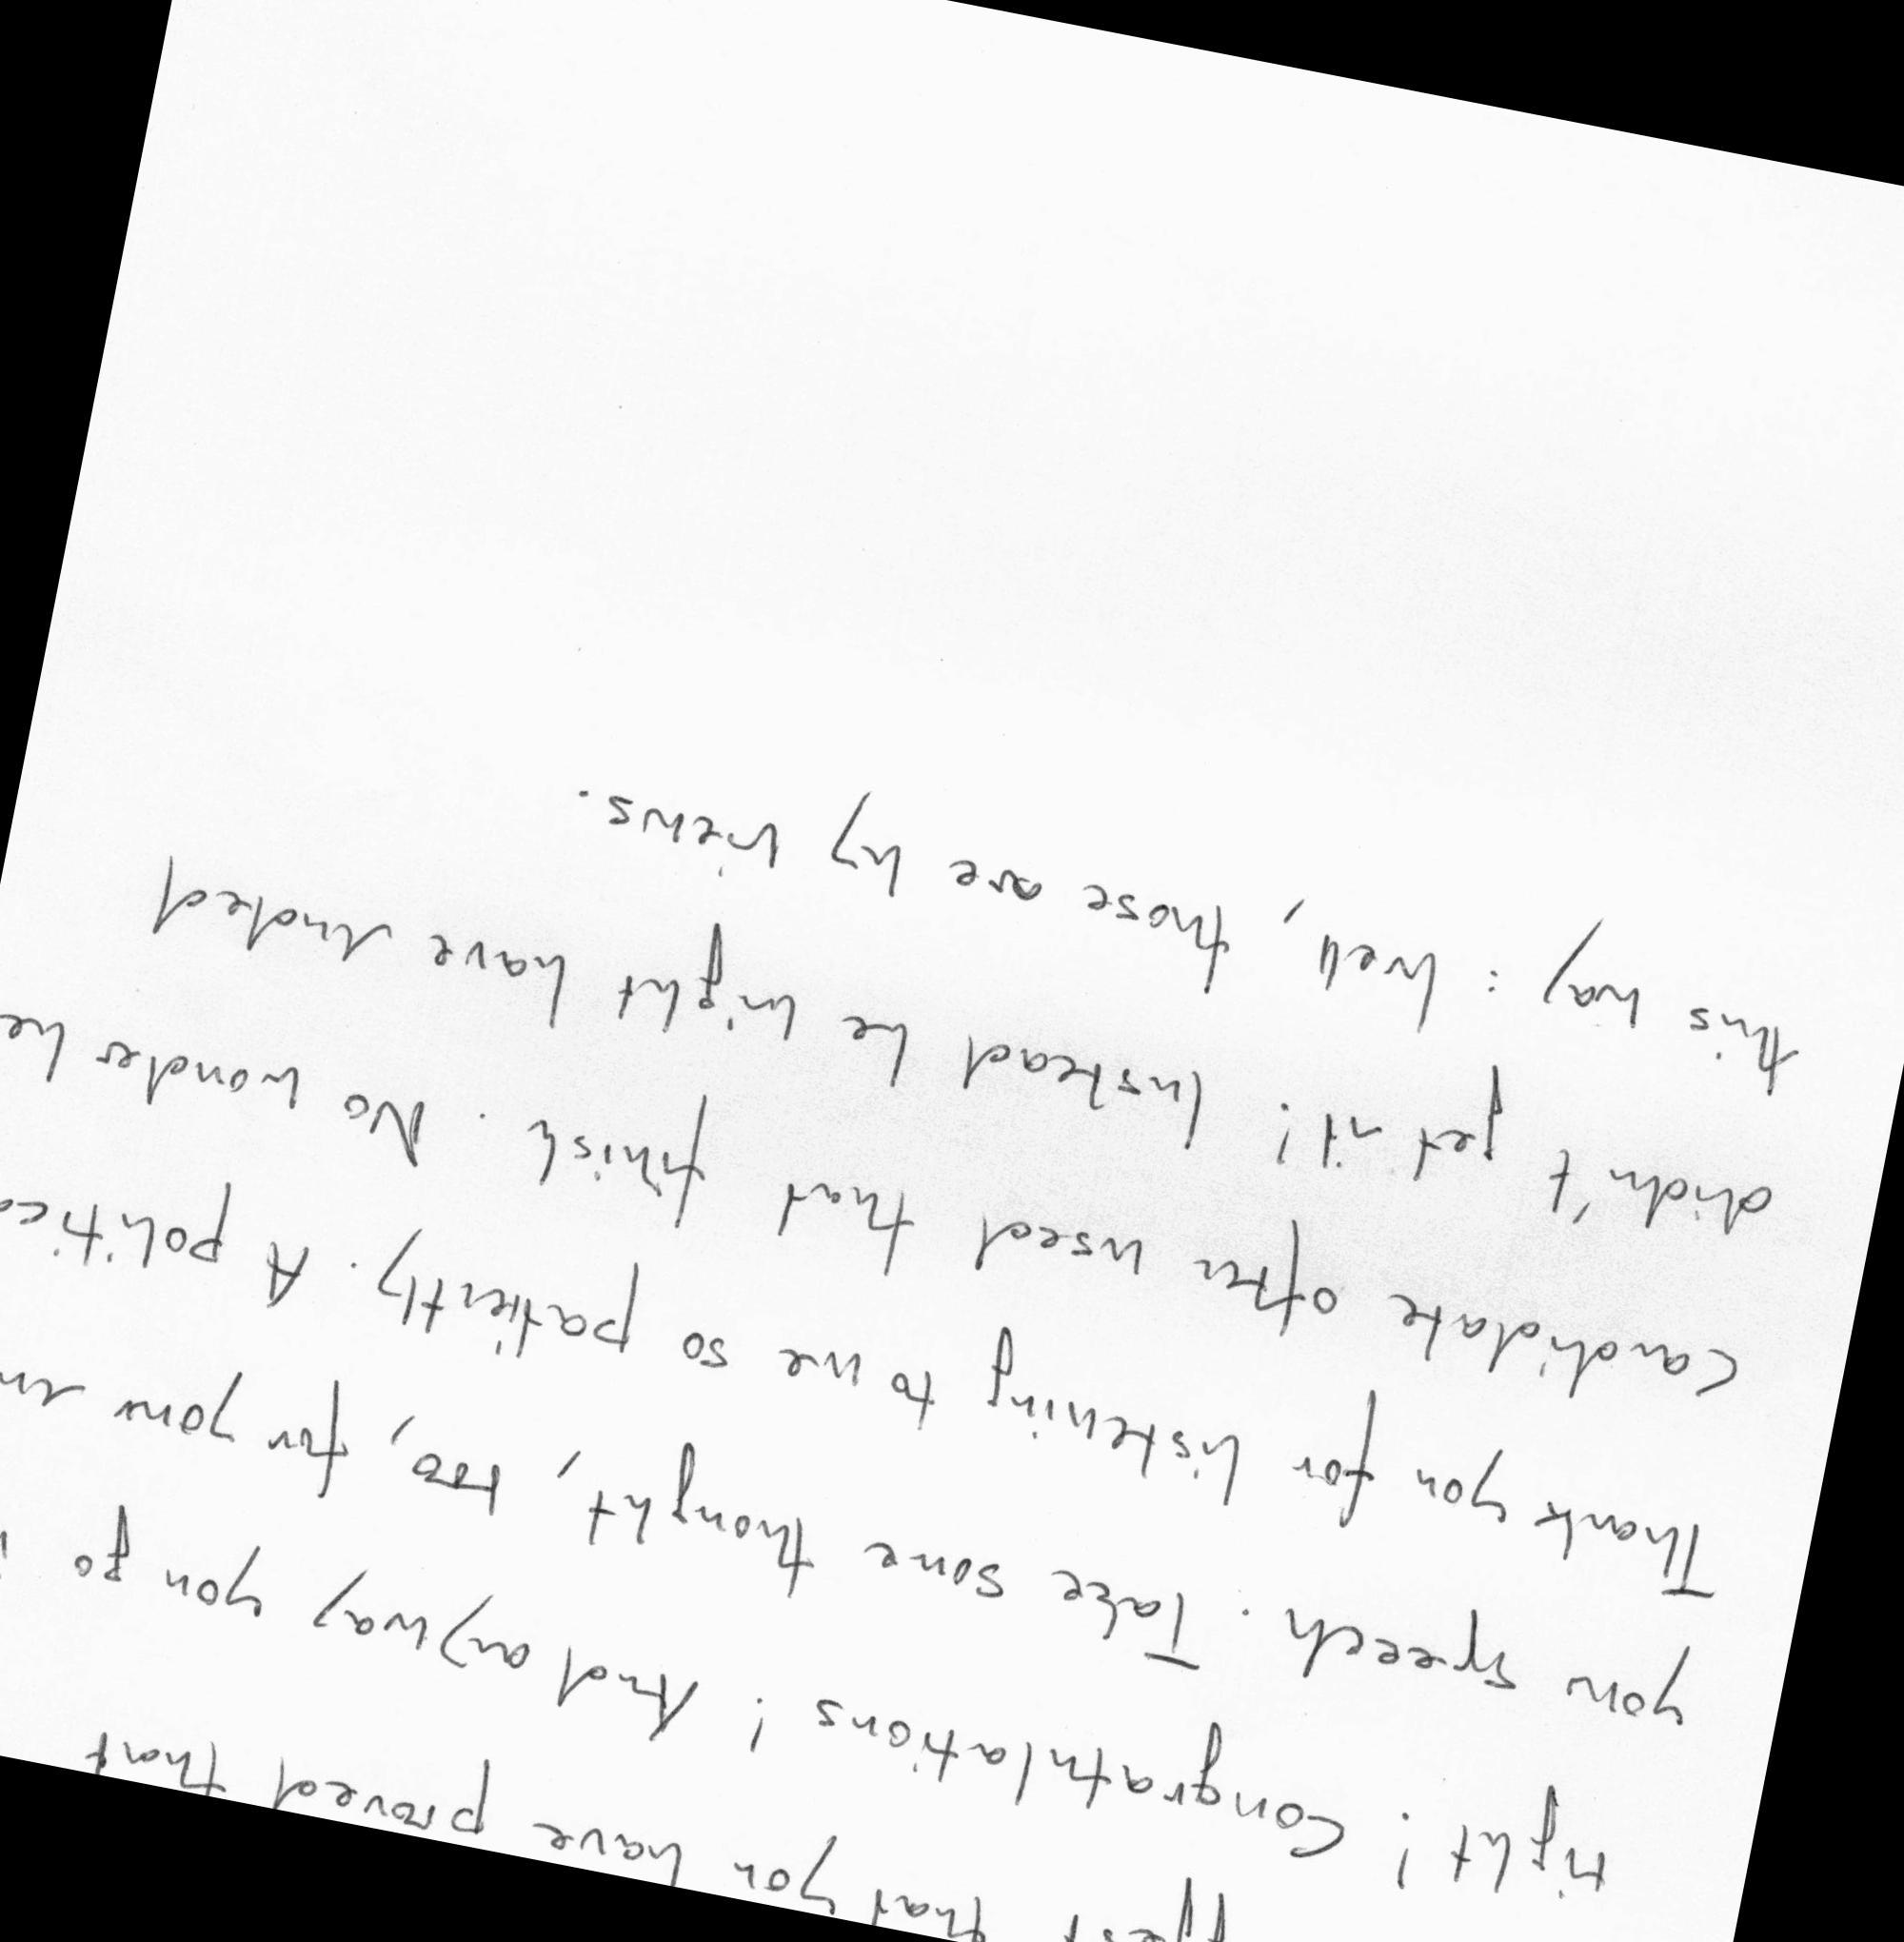 that you have proved that
right! Congratulations! And anyway you go
your speech. Take some thought, too, for your
Thank you for listening to me so patiently. A
candidate often used that finish. No wonder he
didn't get it! Instead he might have ended
this way: Well, those are my views.